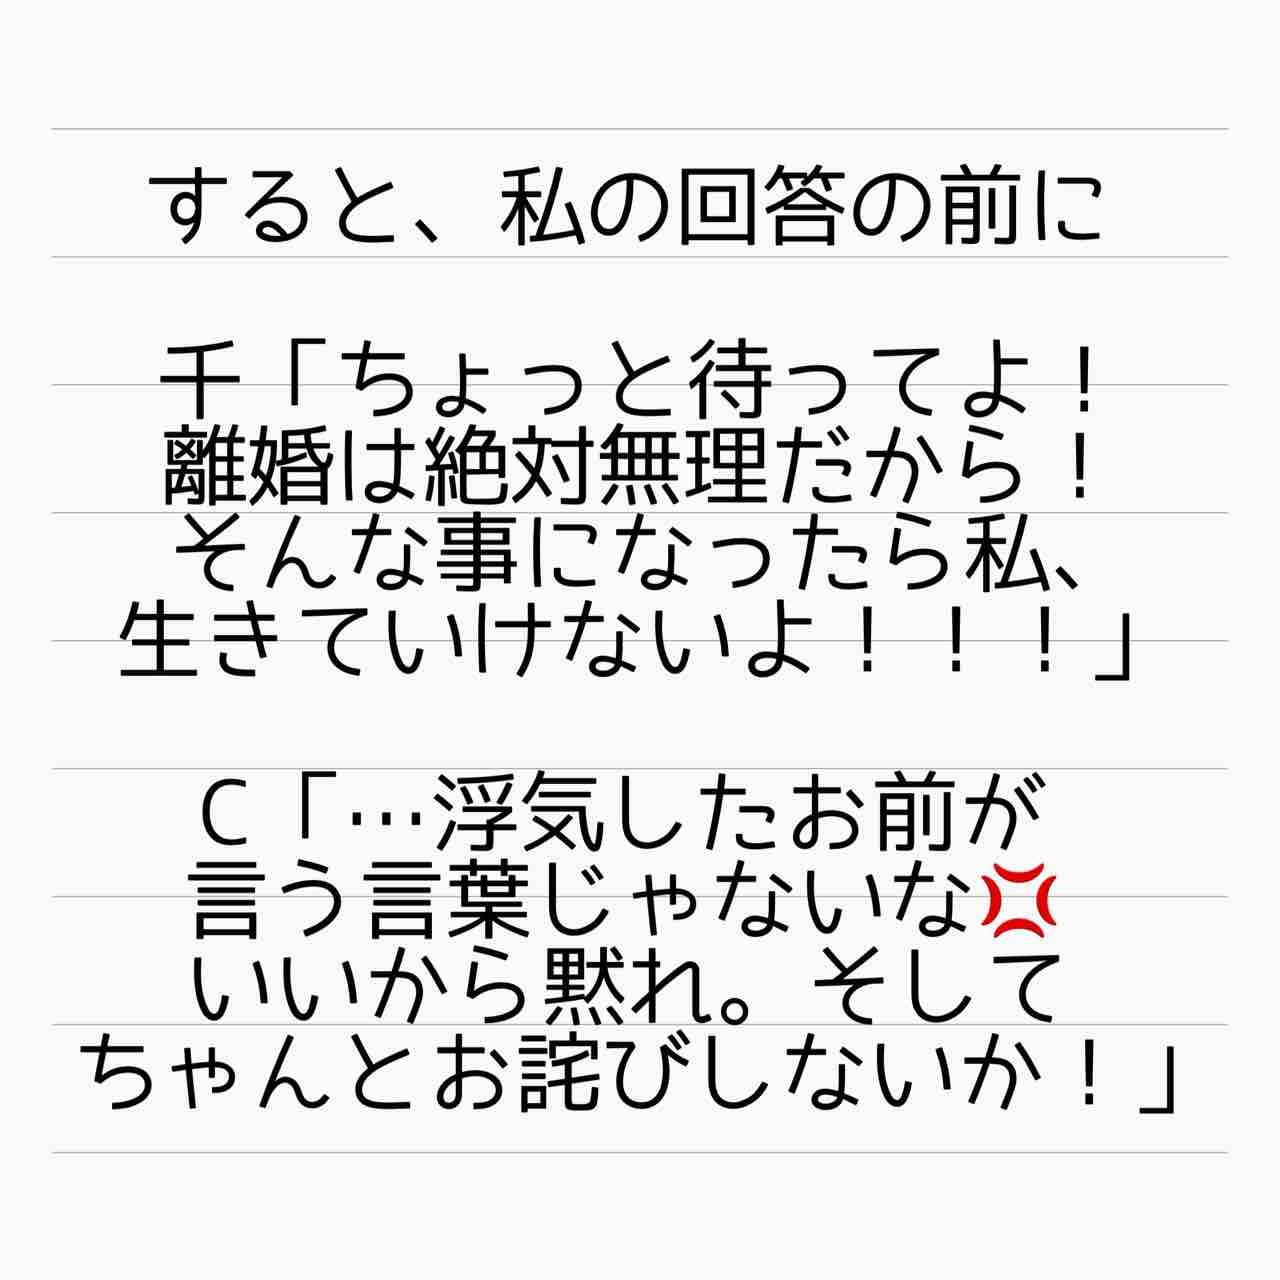 すると、私の回答の前に
千「ちょっと待ってよ！
離婚は絶対無理だから！
そんな事になったら私、
生きていけないよ！！！」
C「…浮気したお前が
言う言葉じゃないな💢
いいから黙れ。そして
ちゃんとお詫びしないか！」